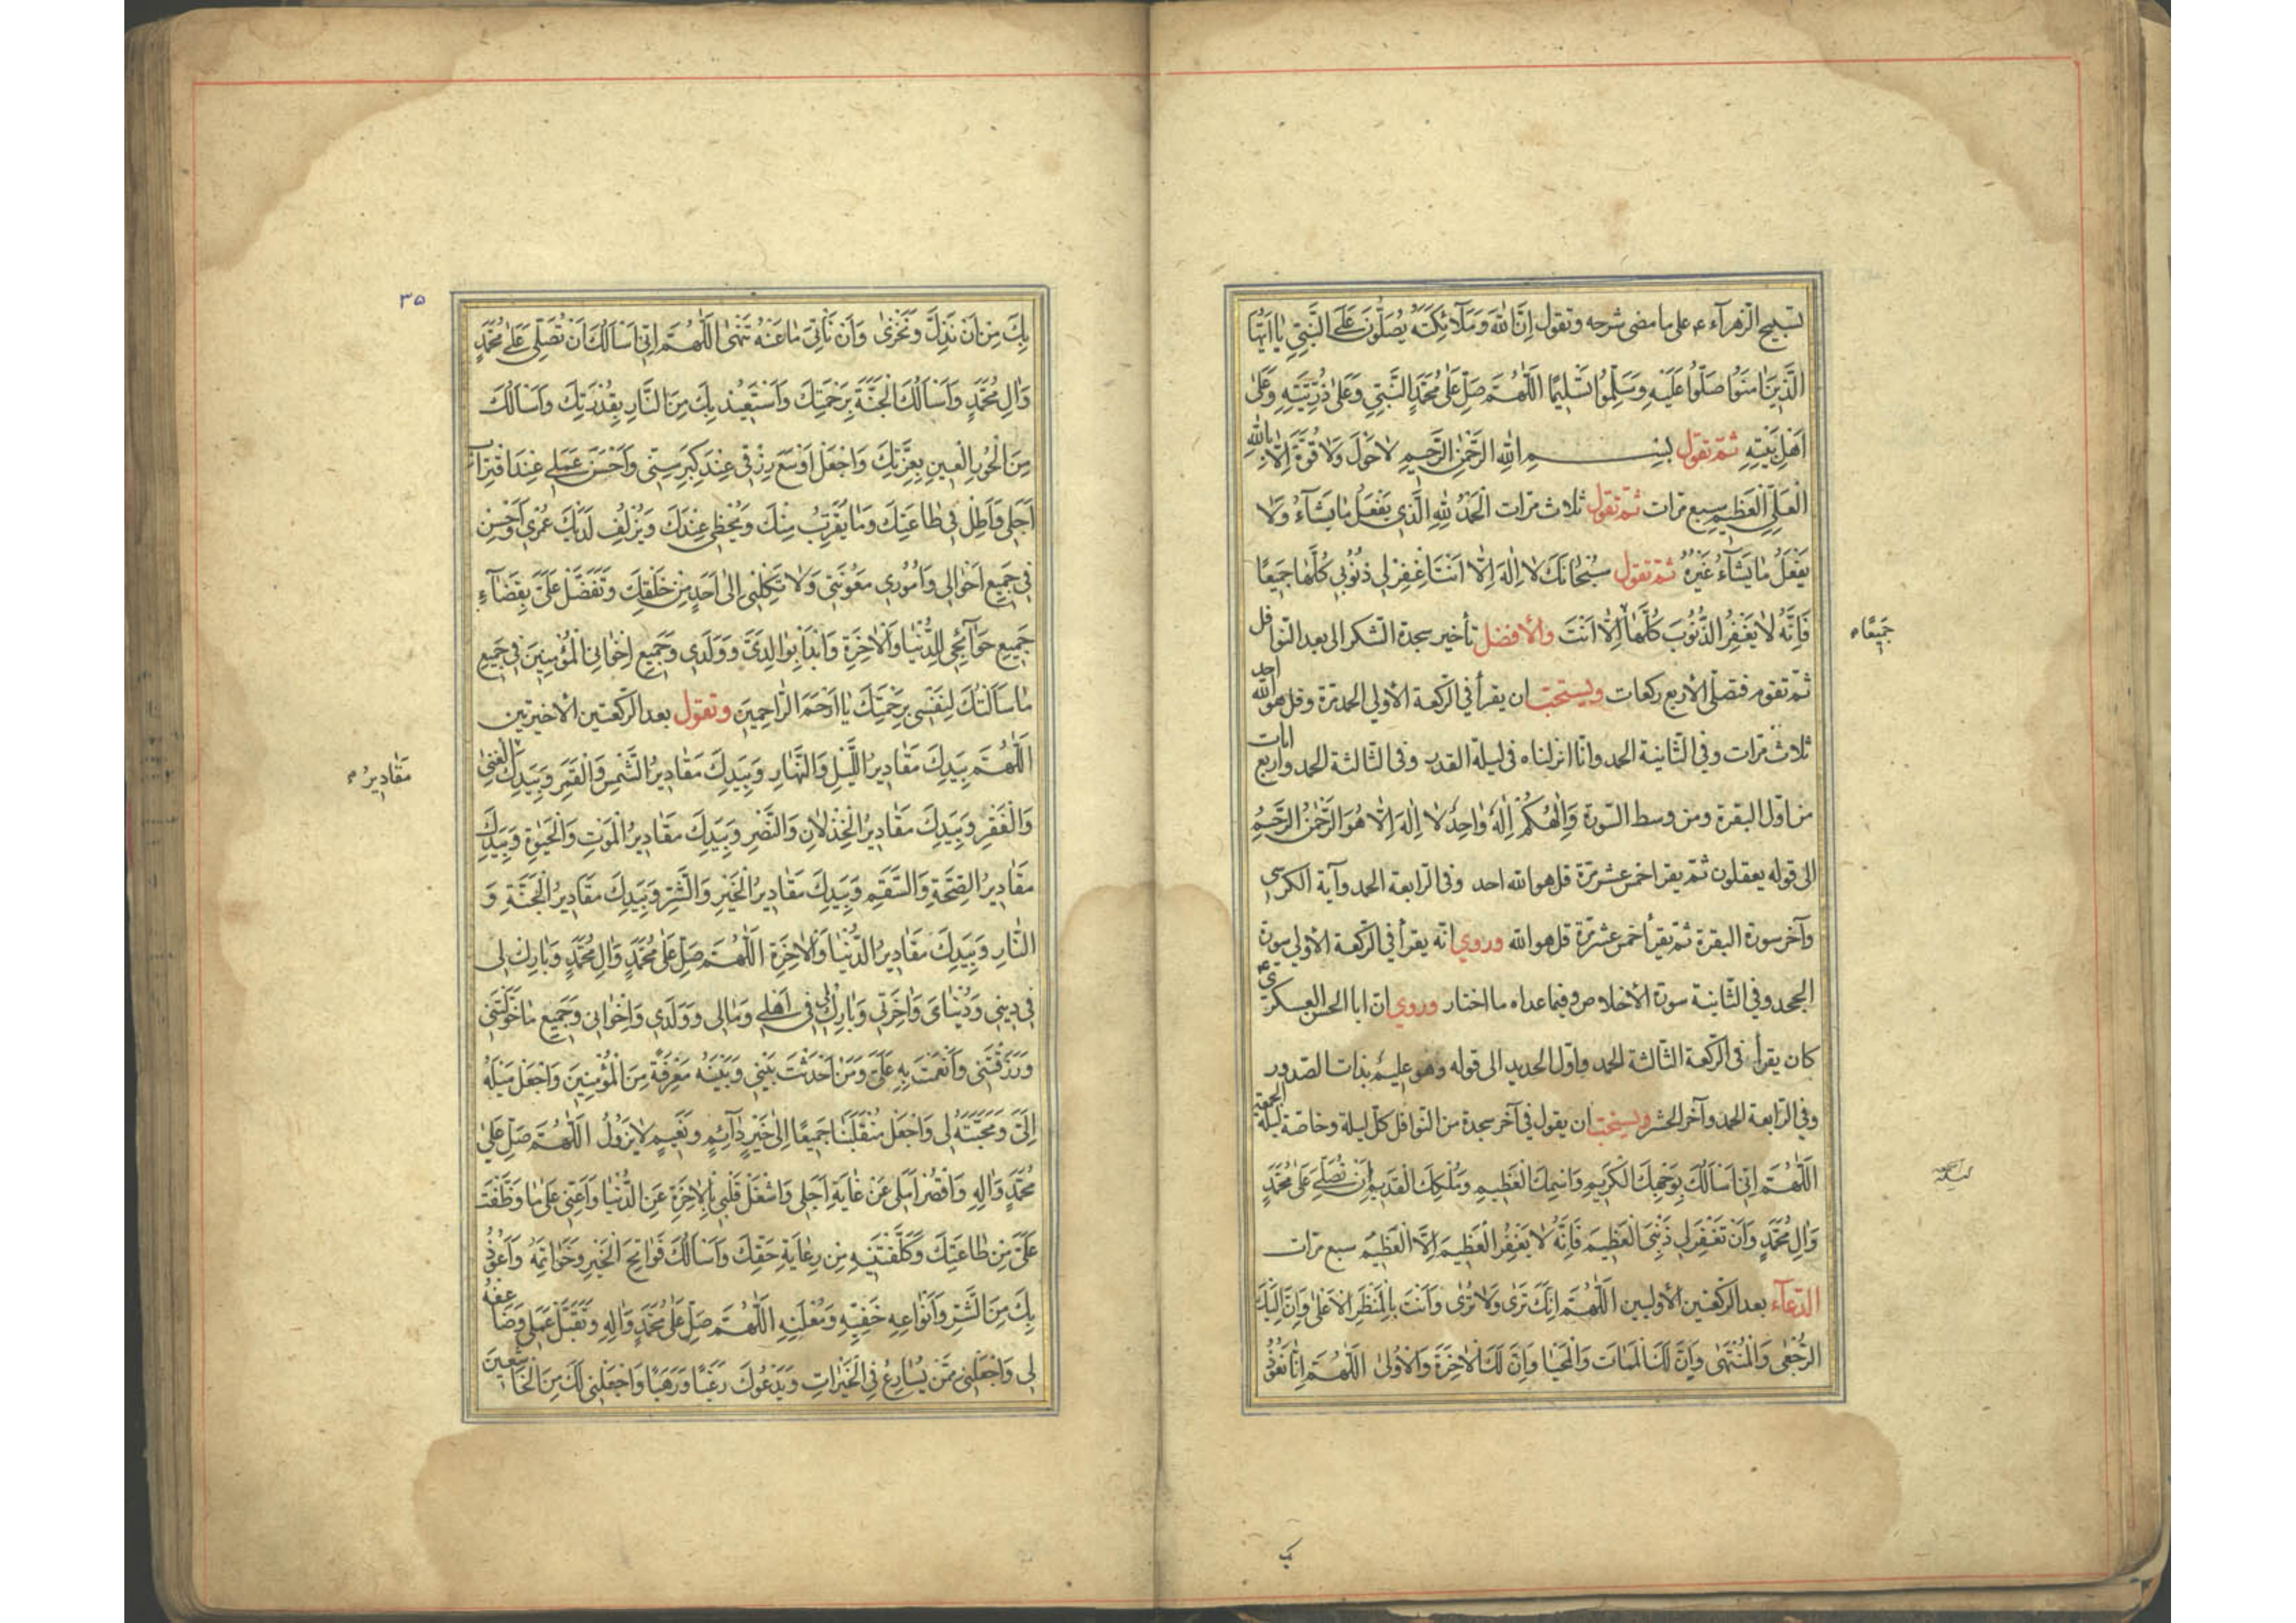 تسبيح الزهرآء ء على ما مضى شرحه وتقول اِنَّ اللهَ وَمَلآئِكَتَهُ يُصَلُّونَ عَلَى النَّبِيِّ يٰا اَيُّهَا
الَّذِينَ اٰمَنُوا صَلُّوا عَلَيْهِ وَسَلِّمُوا تَسْلِيمًا اَللّٰهُمَّ صَلِّ عَلىٰ مُحَمَّدٍ النَّبِيِّ وَعَلىٰ ذُرِّيَّتِهِ وَعَلىٰ
اَهْلِ بَيْتِهِ ثم تقول بِسْمِ اللهِ الرَّحْمٰنِ الرَّحِيمِ لاٰحَوْلَ وَلاٰ قُوَّةَ اِلاّٰ بِاللهِ
الْعَلِيِّ الْعَظِيمِ سبع مرات ثم تقول ثلاث مرات اَلْحَمْدُ لِلّٰهِ الَّذِي يَفْعَلُ مٰا يَشٰآءُ وَلاٰ
يَفْعَلُ مٰا يَشٰآءُ غَيْرُهُ ثم تقول سُبْحٰانَكَ لاٰ اِلٰهَ اِلاّٰ اَنْتَ اغْفِرْ لِي ذُنُوبِي كُلَّهٰا جَمِيعًا
فَاِنَّهُ لاٰ يَغْفِرُ الذُّنُوبَ كُلَّهٰا اِلاّٰ اَنْتَ والأفضل تأخير سجدة الشكر الى بعد النوافل
جَمِيعًا
ثم تقوم فتصلى الأربع ركعات ويستحب ان يقرأ في الركعة الأولي الحمد مرة وقل هو الله احد
ثلاث مرات وفي الثانية الحمد وانا انزلناه فى ليلة القدر وفى الثالثة الحمد واربع ايات
من اول البقرة ومن وسط السورة وَاِلٰهُكُمْ اِلٰهٌ وٰاحِدٌ لاٰ اِلٰهَ اِلاّٰ هُوَ الرَّحْمٰنُ الرَّحِيمُ
الى قوله يعقلون ثم يقرا خمس عشر مرة قل هو الله احد وفى الرابعة الحمد وآية الكرسى
وآخر سورة البقرة ثم يقرأ خمس عشر مرة قل هو الله وروي انه يقرأ في الركعة الأولي سورة
الجحد وفي الثانية سورة الأخلاص وفيما عداه ما اختار وروي ان ابا الحسن العسكرى
كان يقرأ فى الركعة الثالثة الحمد واول الحديد الى قوله وهو عليم بذات الصدور
وفي الرابعة الحمد وآخر الحشر ويستحب ان يقول في آخر سجدة من النوافل كل ليلة وخاصة ليلة الجمعة
اَللّٰهُمَّ اِنِّي اَسْاَلُكَ بِوَجْهِكَ الْكَرِيمِ وَاسْمِكَ الْعَظِيمِ وَمُلْكِكَ الْقَدِيمِ اَنْ تُصَلِّيَ عَلىٰ مُحَمَّدٍ
وَاٰلِ مُحَمَّدٍ وَاَنْ تَغْفِرَ لِي ذَنْبِيَ الْعَظِيمَ فَاِنَّهُ لاٰ يَغْفِرُ الْعَظِيمَ اِلاَّ الْعَظِيمُ سبع مرات
الدعآء بعد الركعتين الأوليين اَللّٰهُمَّ اِنَّكَ تَرىٰ وَلاٰ تُرىٰ وَاَنْتَ بِالْمَنْظَرِ الْاَعْلىٰ وَاِنَّ اِلَيْكَ
الرُّجْعىٰ وَالْمُنْتَهىٰ وَاِنَّ لَكَ الْمَمٰاتَ وَالْمَحْيٰا وَاِنَّ لَكَ الْاٰخِرَةَ وَالْاُولىٰ اَللّٰهُمَّ اِنّٰا نَعُوذُ
بك
٣٥
بِكَ مِنْ اَنْ نَذِلَّ وَنَخْزىٰ وَاَنْ نَأْتِيَ مٰا عَنْهُ تَنْهىٰ اَللّٰهُمَّ اِنِّي اَسْاَلُكَ اَنْ تُصَلِّيَ عَلىٰ مُحَمَّدٍ
وَاٰلِ مُحَمَّدٍ وَاَسْاَلُكَ الْجَنَّةَ بِرَحْمَتِكَ وَاَسْتَعِيذُ بِكَ مِنَ النَّارِ بِقُدْرَتِكَ وَاَسْاَلُكَ
مِنَ الْحُورِ الْعِينِ بِعِزَّتِكَ وَاجْعَلْ اَوْسَعَ رِزْقِي عِنْدَ كِبَرِ سِنِّي وَاَحْسَنَ عَمَلِي عِنْدَ اقْتِرٰابِ
اَجَلِي وَاَطِلْ فِي طٰاعَتِكَ وَمٰا يُقَرِّبُ مِنْكَ وَيُحْظِي عِنْدَكَ وَيُزْلِفُ لَدَيْكَ عُمْرِي وَاَحْسِنْ
فِي جَمِيعِ اَحْوٰالِي وَاُمُورِي مَعُونَتِي وَلاٰ تَكِلْنِي اِلىٰ اَحَدٍ مِنْ خَلْقِكَ وَتَفَضَّلْ عَلَيَّ بِقَضٰآءِ
جَمِيعِ حَوٰآئِجِي لِلدُّنْيٰا وَالْاٰخِرَةِ وَابْدَأْ بِوٰالِدَيَّ وَوَلَدِي وَجَمِيعِ اِخْوٰانِيَ الْمُؤْمِنِينَ فِي جَمِيعِ
مٰا سَاَلْتُكَ لِنَفْسِي بِرَحْمَتِكَ يٰا اَرْحَمَ الرّٰاحِمِينَ وتقول بعد الركعتين الأخيرتين
اَللّٰهُمَّ بِيَدِكَ مَقٰادِيرُ اللَّيْلِ وَالنَّهٰارِ وَبِيَدِكَ مَقٰادِيرُ الشَّمْسِ وَالْقَمَرِ وَبِيَدِكَ الْغِنىٰ
مَقٰادِيرُ
وَالْفَقْرِ وَبِيَدِكَ مَقٰادِيرُ الْخِذْلاٰنِ وَالنَّصْرِ وَبِيَدِكَ مَقٰادِيرُ الْمَوْتِ وَالْحَيٰوةِ وَبِيَدِكَ
مَقٰادِيرُ الصِّحَّةِ وَالسَّقَمِ وَبِيَدِكَ مَقٰادِيرُ الْخَيْرِ وَالشَّرِّ وَبِيَدِكَ مَقٰادِيرُ الْجَنَّةِ وَ
النّٰارِ وَبِيَدِكَ مَقٰادِيرُ الدُّنْيٰا وَالْاٰخِرَةِ اَللّٰهُمَّ صَلِّ عَلىٰ مُحَمَّدٍ وَاٰلِ مُحَمَّدٍ وَبٰارِكْ لِي
فِي دِينِي وَدُنْيٰايَ وَاٰخِرَتِي وَبٰارِكْ لِي فِي اَهْلِي وَمٰالِي وَوَلَدِي وَاِخْوٰانِي وَجَمِيعِ مٰا خَوَّلْتَنِي
وَرَزَقْتَنِي وَاَنْعَمْتَ بِهِ عَلَيَّ وَمَنْ اَحْدَثْتَ بَيْنِي وَبَيْنَهُ مَعْرِفَةً مِنَ الْمُؤْمِنِينَ وَاجْعَلْ مَيْلَهُ
اِلَيَّ وَمَحَبَّتَهُ لِي وَاجْعَلْ مُنْقَلَبَنٰا جَمِيعًا اِلىٰ خَيْرٍ دٰآئِمٍ وَنَعِيمٍ لاٰ يَزُولُ اَللّٰهُمَّ صَلِّ عَلىٰ
مُحَمَّدٍ وَاٰلِهِ وَاقْصُرْ اَمَلِي عَنْ غٰايَةِ اَجَلِي وَاشْغَلْ قَلْبِي بِالْاٰخِرَةِ عَنِ الدُّنْيٰا وَاَعِنِّي عَلىٰ مٰا وَظَّفْتَ
عَلَيَّ مِنْ طٰاعَتِكَ وَكَلَّفْتَنِيهِ مِنْ رِعٰايَةِ حَقِّكَ وَاَسْاَلُكَ فَوٰاتِحَ الْخَيْرِ وَخَوٰاتِمَهُ وَاَعُوذُ
بِكَ مِنَ الشَّرِّ وَاَنْوٰاعِهِ خَفِيِّهِ وَمُعْلَنِهِ اَللّٰهُمَّ صَلِّ عَلىٰ مُحَمَّدٍ وَاٰلِهِ وَتَقَبَّلْ عَمَلِي وَضٰاعِفْهُ
لِي وَاجْعَلْنِي مِمَّنْ يُسٰارِعُ فِي الْخَيْرٰاتِ وَيَدْعُوكَ رَغَبًا وَرَهَبًا وَاجْعَلْنِي لَكَ مِنَ الْخٰاشِعِينَ